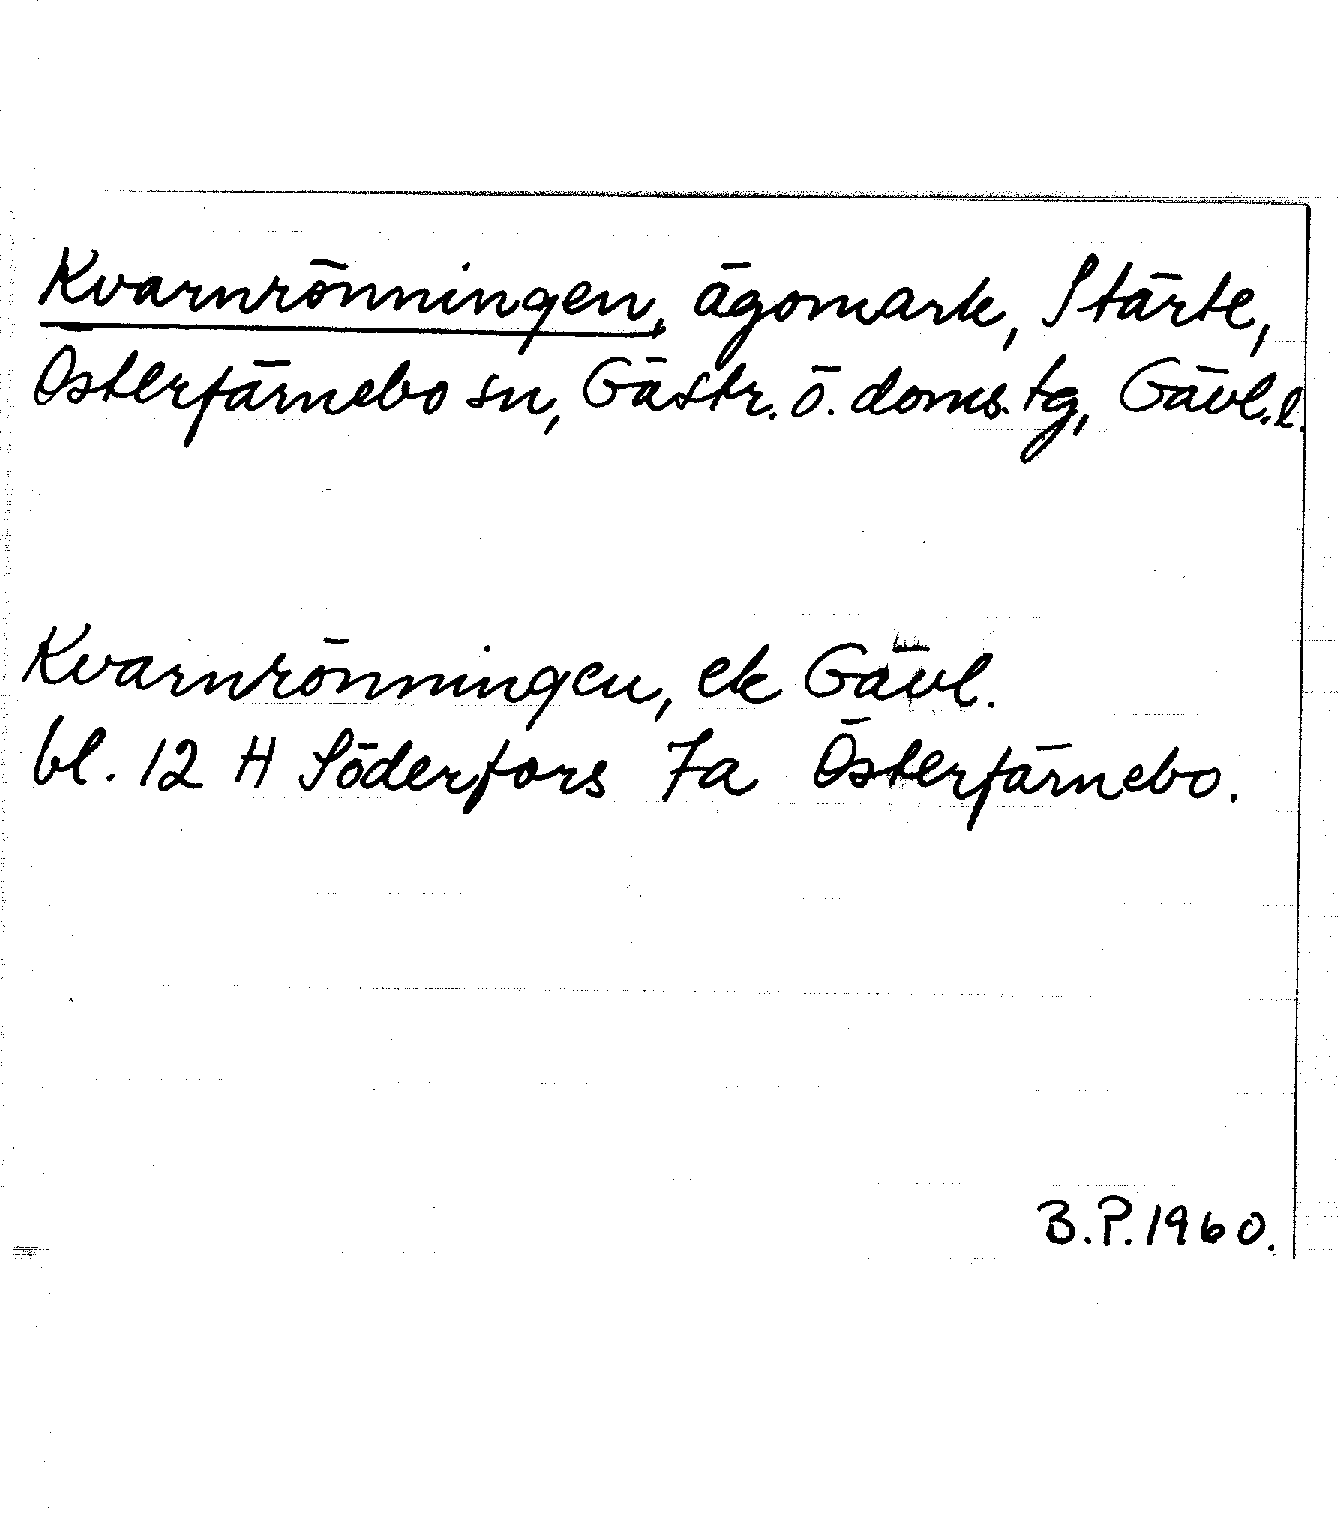 Kvarnrönningen, ägomark, Stärte,
Österfärnebo sn, Gästr. ö. doms. tg, Gävl. l.
Kvarnrönningen, ek Gävl.
bl. 12 H Söderfors 7a Österfärnebo.
B.P. 1960.